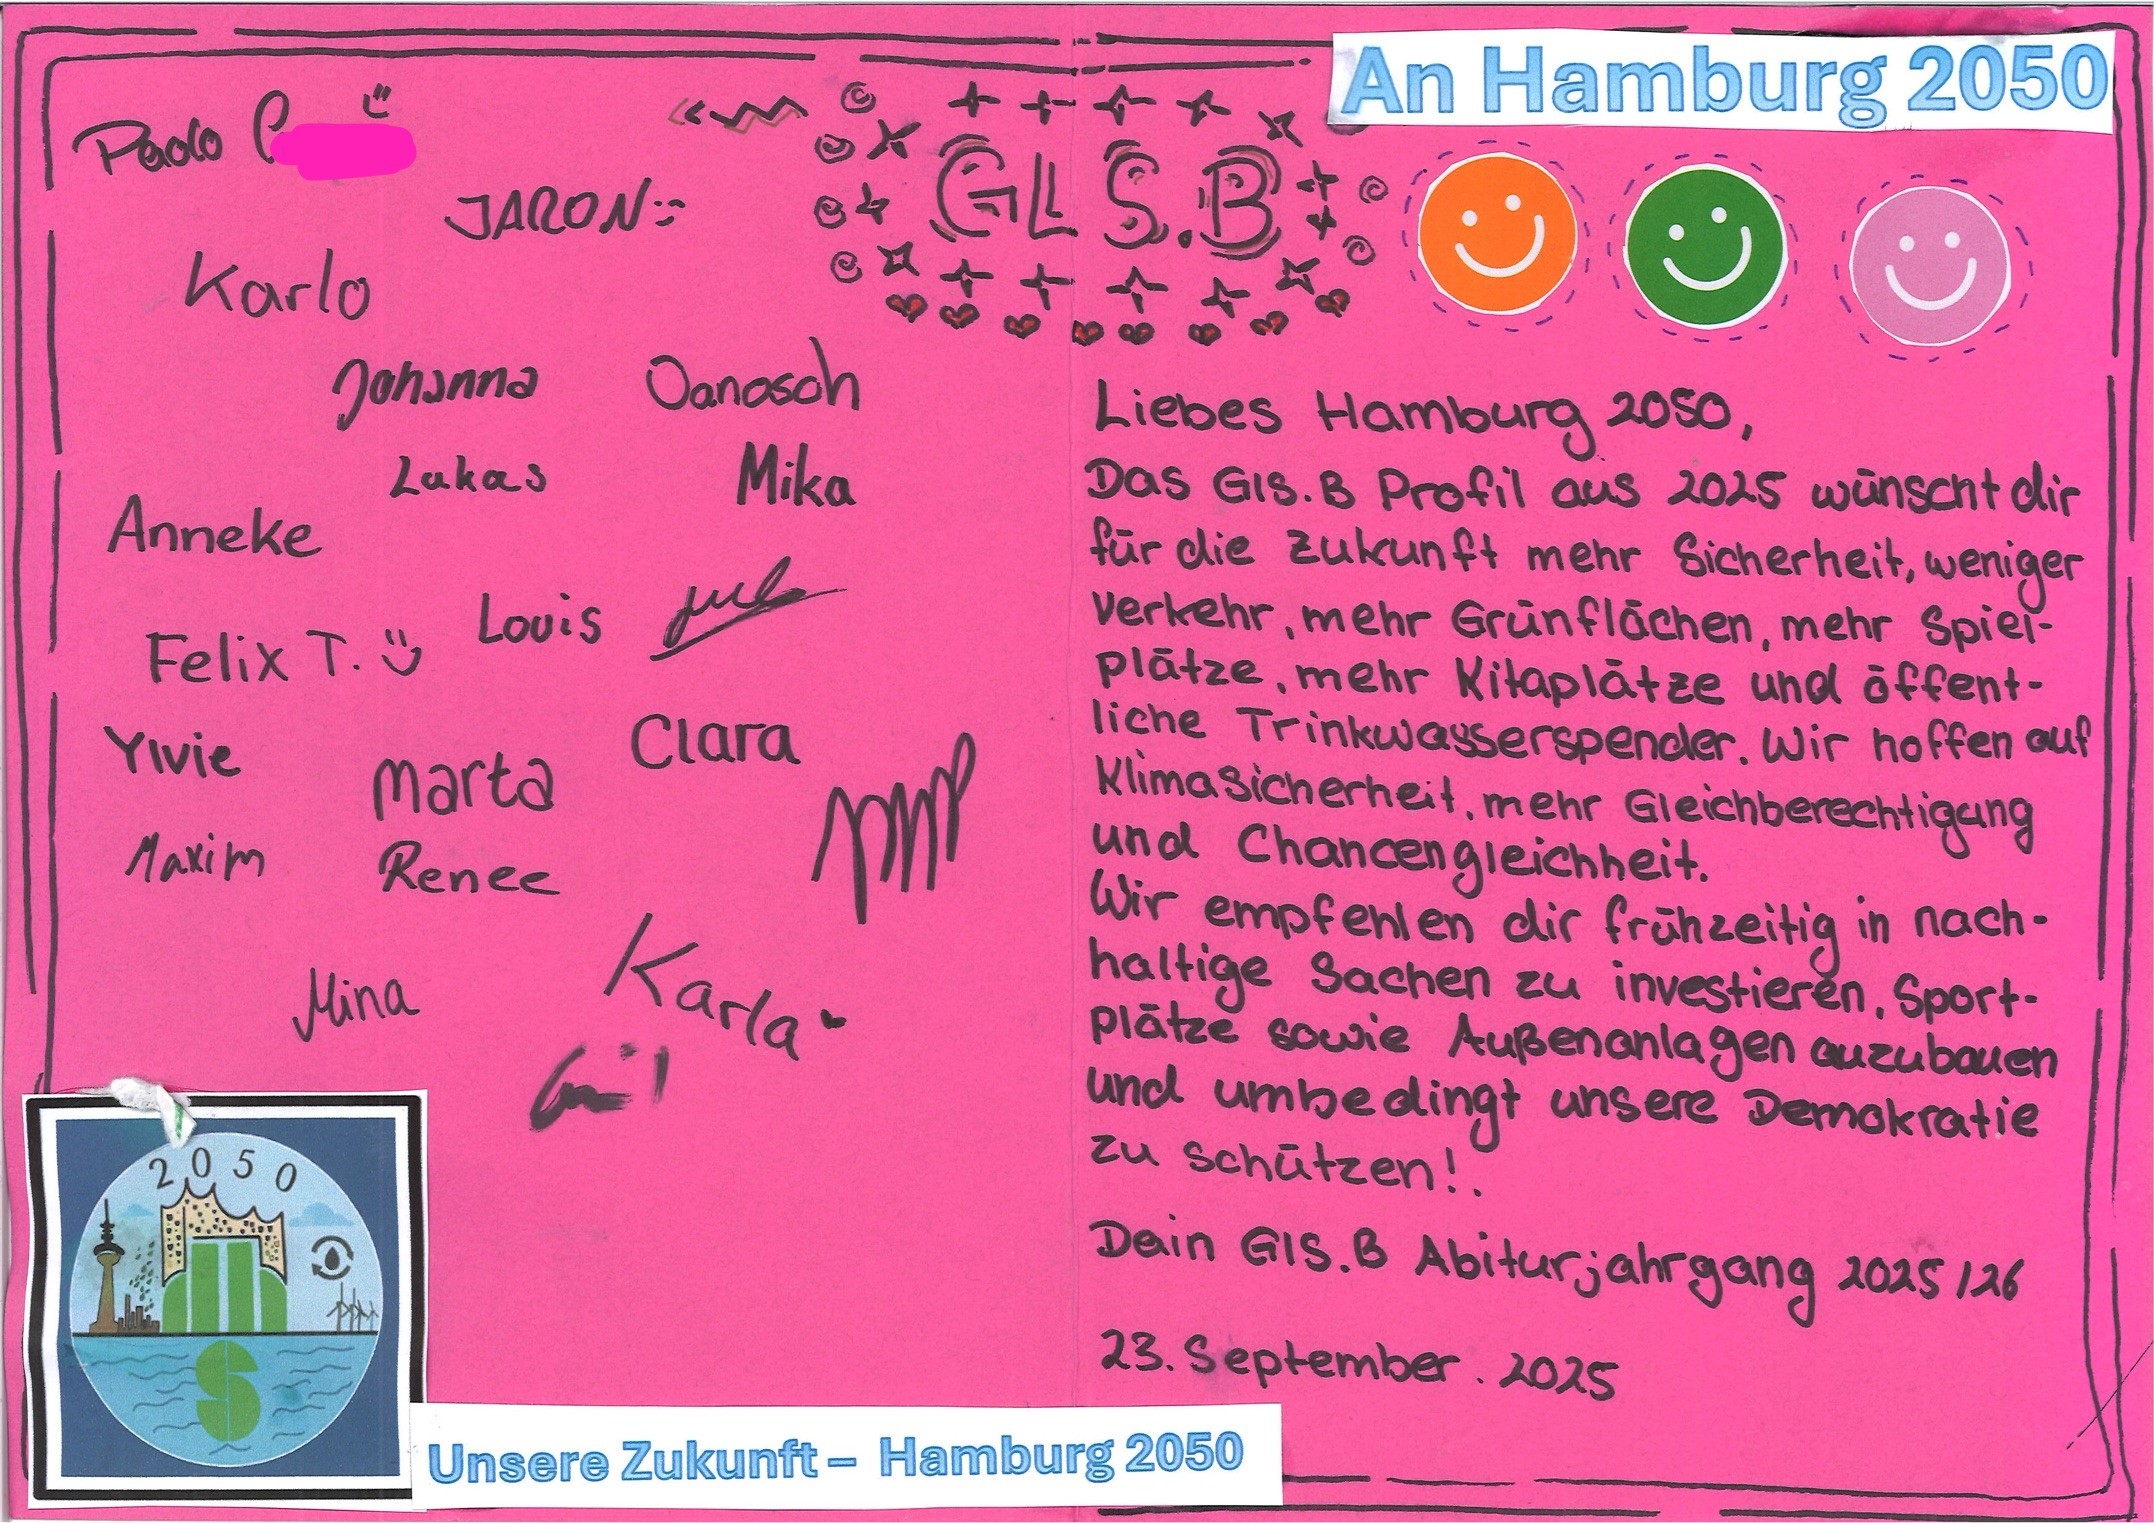 An Hamburg 2050
GIS.B
Paolo
JARON
Karlo
Johanna
Lukas
Mika
Anneke
Louis
Felix T.
Clara
Marta
Maxim
Renee
Mina
Karla
Liebes Hamburg 2050,
Das GIS.B Profil aus 2025 wünscht dir
für die Zukunft mehr Sicherheit, weniger
Verkehr, mehr Grünflächen, mehr Spiel-
plätze, mehr Kitaplätze und öffent-
liche Trinkwasserspender. Wir hoffen auf
Klimasicherheit, mehr Gleichberechtigung
und Chancengleichheit.
Wir empfehlen dir frühzeitig in nach-
haltige Sachen zu investieren, Sport-
plätze sowie Außenanlagen auzubauen
und umbedingt unsere Demokratie
zu schützen!.
Dein GIS.B Abiturjahrgang 2025/26
23. September. 2025
2050
S
Unsere Zukunft – Hamburg 2050